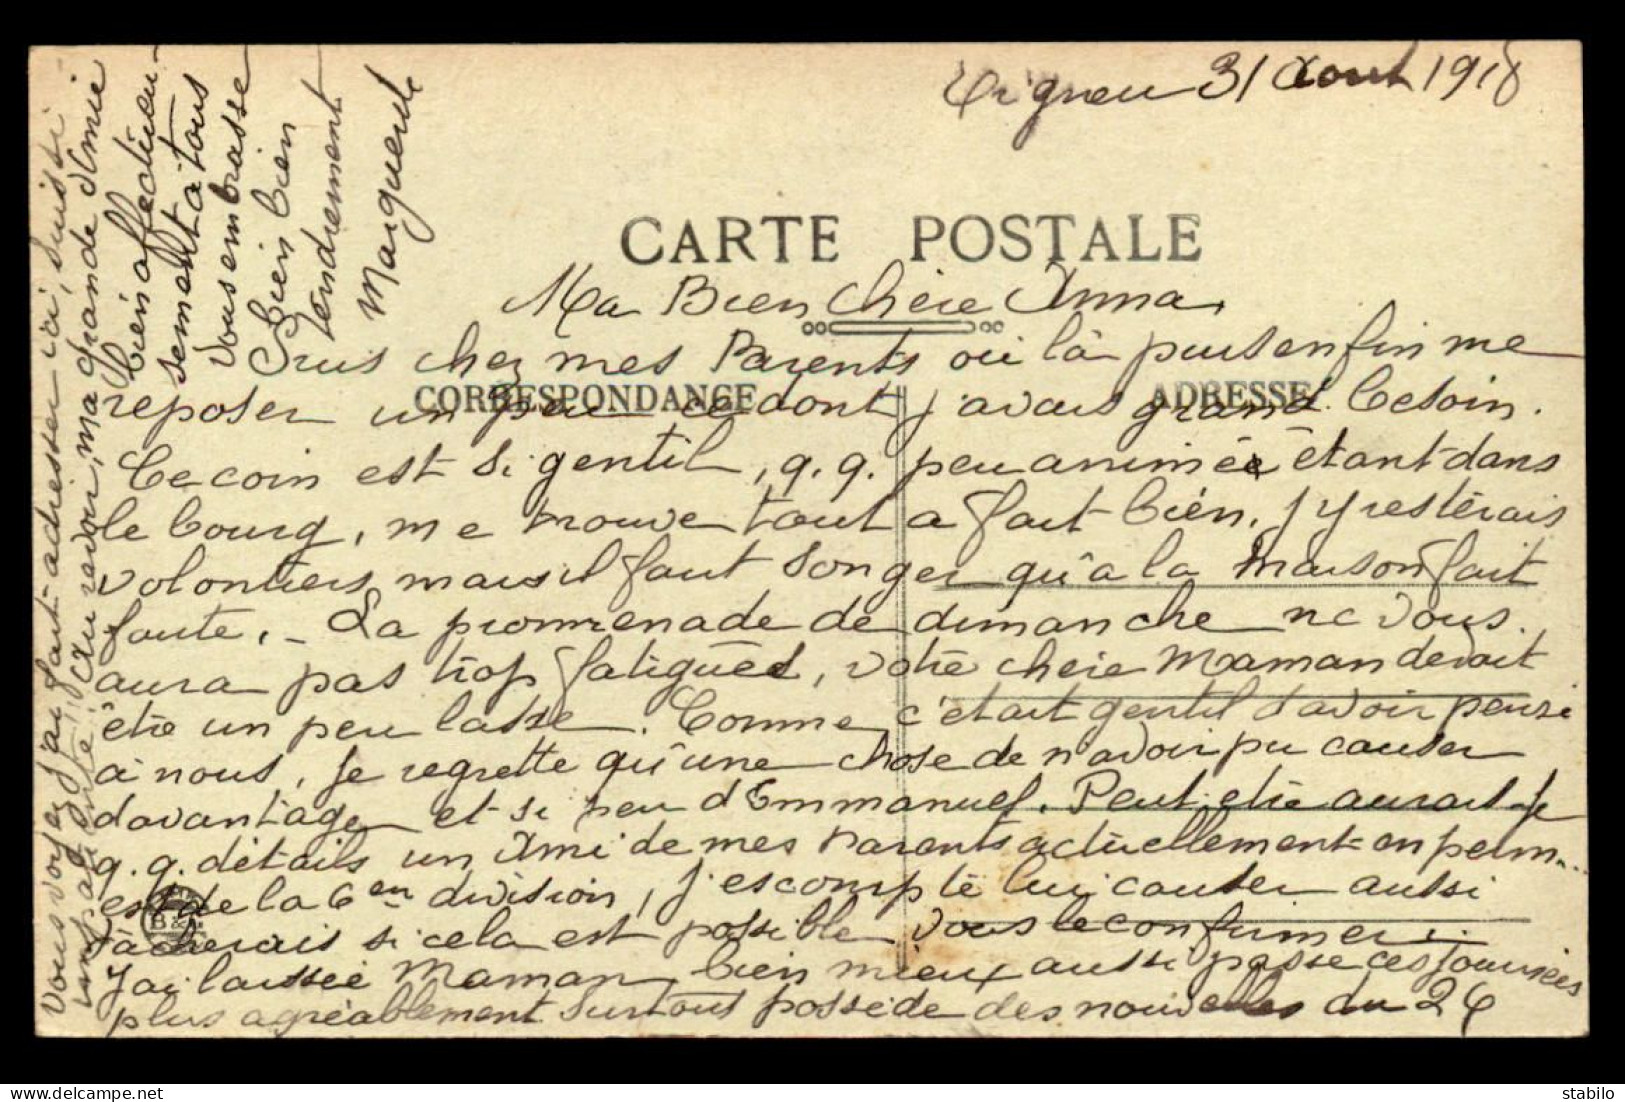 31 Aout 1918
CARTE POSTALE
Ma Bien Chère Anna,
Suis chez mes Parents où là puis enfin me
CORRESPONDANCE ADRESSE
reposer un peu ce dont j'avais grand besoin.
Ce coin est si gentil, q.q. peu animée étant dans
le bourg, me trouve tout a fait bien, j'y resterais
volontiers, mais il faut songer qu'a la maison fait
faute. - La promenade de dimanche ne vous
aura pas trop fatiguées, votre chère Maman devait
être un peu lasse. Comme c'était gentil d'avoir pensé
à nous, je regrette qu'une chose de n'avoir pu causer
davantage et si peu d'Emmanuel. Peut-etre aurais-je
q.q. détails un Ami de mes Parents actuellement en perm...
est de la 6en division, j'escompte lui causer aussi
tâcherais si cela est possible vous le confirmer.
J'ai laissée Maman bien mieux aussi passe ces journées
plus agréablement surtout possède des nouvelles du 26
Vous voyez j'ai fait adresser ici, suis si
impatiente!! Au revoir, ma grande Amie
bien affectueu-
sement à tous
Vous embrasse
bien bien
tendrement
Marguerite